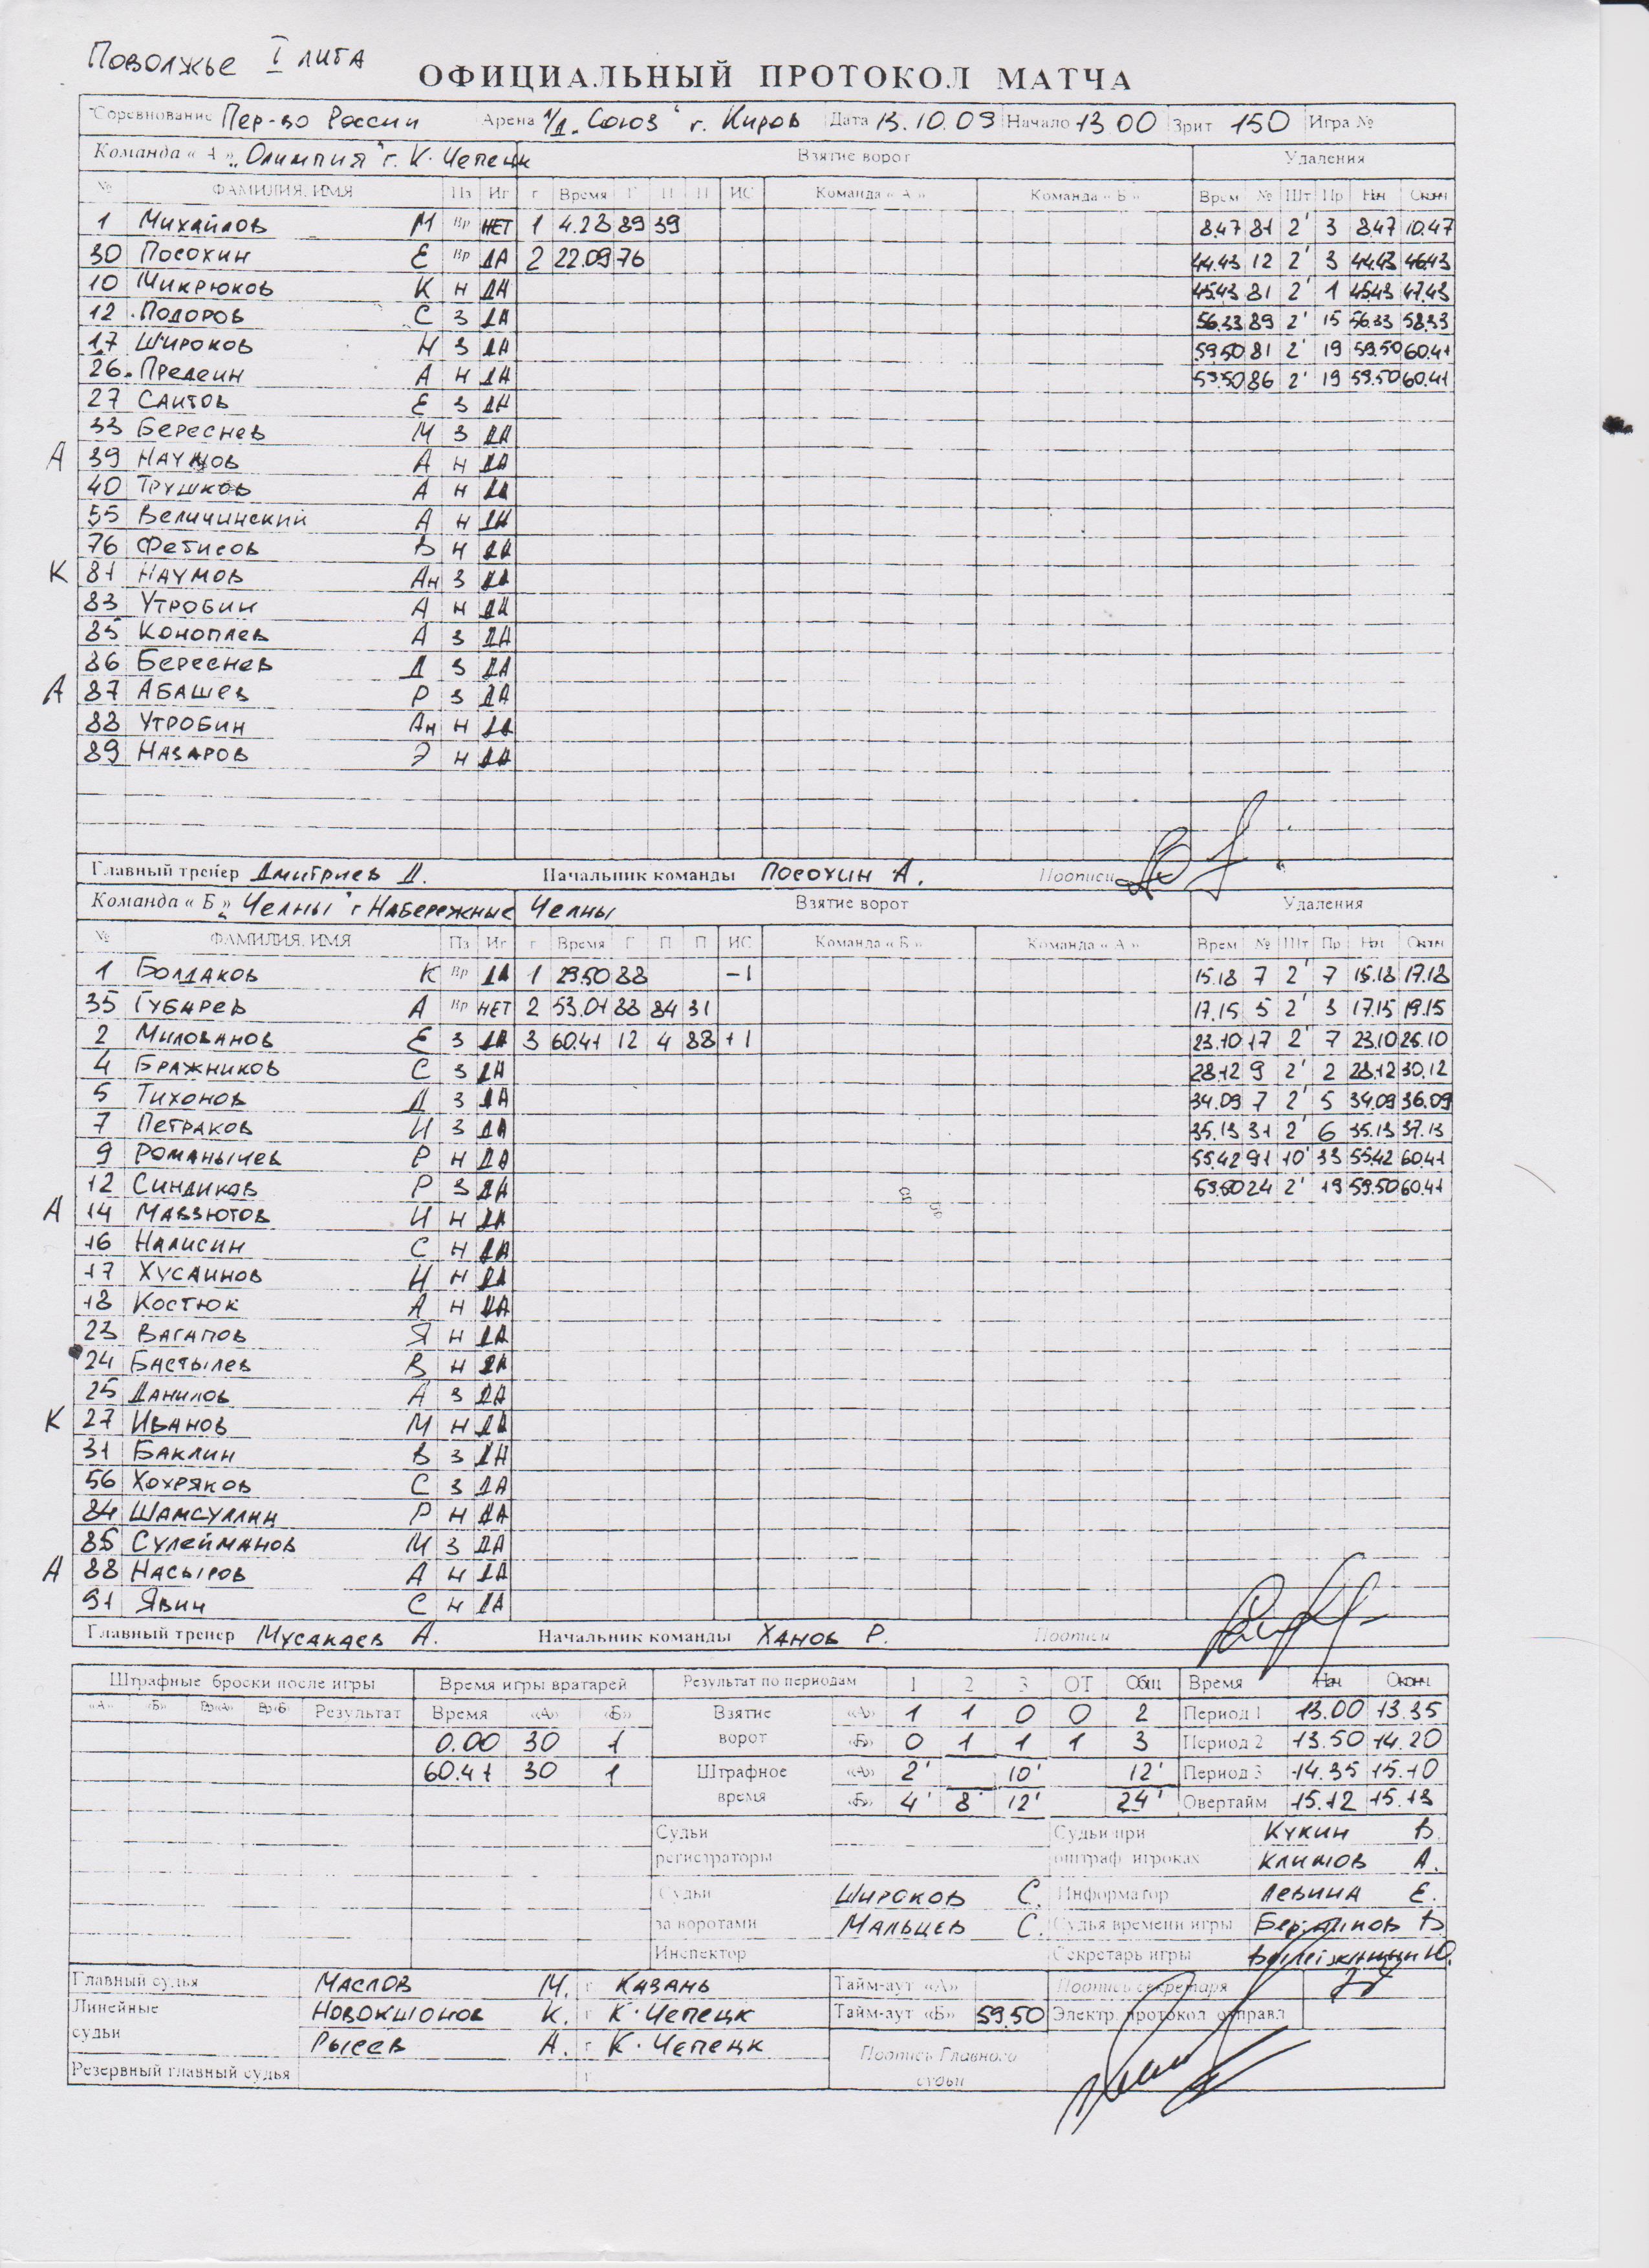 Поволжье I лига
ОФИЦИАЛЬНЫЙ ПРОТОКОЛ МАТЧА
Соревнование Пер-во России Арена Л/Д "Союз" г. Киров Дата 13.10.09 Начало 13 00 Зрит 150 Игра №
Команда « А » "Олимпия" г. К-Чепецк Взятие ворот Удаления
№ ФАМИЛИЯ, ИМЯ Пз Иг г Время Г П П ИС Команда « А » Команда « Б » Врем № Шт Пр Нач Оконч
1 Михайлов М Вр НЕТ 1 4.28 89 39 8.47 81 2' 3 8.47 10.47
30 Посохин Е Вр ДА 2 22.09 76 44.43 12 2' 3 44.43 46.43
10 Микрюков К Н ДА 45.43 81 2' 1 45.43 47.43
12 Подоров С З ДА 56.33 89 2' 15 56.33 58.33
17 Широков Н З ДА 59.50 81 2' 19 59.50 60.41
26 Предеин А Н ДА 59.50 86 2' 19 59.50 60.41
27 Саитов Е З ДА
33 Береснев М З ДА
А 39 Наумов А Н ДА
40 Трушков А Н ДА
55 Величинский А Н ДА
76 Фетисов В Н ДА
К 81 Наумов Ан З ДА
83 Утробин А Н ДА
85 Коноплев А З ДА
86 Береснев Д З ДА
А 87 Абашев Р З ДА
88 Утробин Ан Н ДА
89 Назаров Э Н ДА
Главный тренер Дмитриев Д. Начальник команды Посохин А. Подписи
Команда « Б » "Челны" г Набережные Челны Взятие ворот Удаления
№ ФАМИЛИЯ, ИМЯ Пз Иг г Время Г П П ИС Команда « Б » Команда « А » Врем № Шт Пр Нач Оконч
1 Болдаков К Вр ДА 1 29.50 88 -1 15.18 7 2' 7 15.18 17.18
35 Губарев А Вр НЕТ 2 53.01 88 84 31 17.15 5 2' 3 17.15 19.15
2 Милованов Е З ДА 3 60.41 12 4 88 +1 23.10 17 2' 7 23.10 25.10
4 Бражников С З ДА 28.12 9 2' 2 28.12 30.12
5 Тихонов Д З ДА 34.09 7 2' 5 34.09 36.09
7 Петраков И З ДА 35.13 31 2' 6 35.13 37.13
9 Романычев Р Н ДА 55.42 91 10' 33 55.42 60.41
12 Синдиков Р З ДА 59.50 24 2' 19 59.50 60.41
А 14 Мавзютов И Н ДА
16 Налисин С Н ДА
17 Хусаинов И Н ДА
18 Костюк А Н ДА
23 Вагапов Я Н ДА
24 Бастылев В Н ДА
25 Данилов А З ДА
К 27 Иванов М Н ДА
31 Баклин В З ДА
56 Хохряков С З ДА
84 Шамсуллин Р Н ДА
85 Сулейманов М З ДА
А 88 Насыров А Н ДА
91 Явин С Н ДА
Главный тренер Мусакаев А. Начальник команды Ханов Р. Подписи
Штрафные броски после игры Время игры вратарей Результат по периодам 1 2 3 ОТ Общ Время Нач Оконч
«А» «Б» Вр«А» Вр«Б» Результат Время «А» «Б» Взятие «А» 1 1 0 0 2 Период 1 13.00 13.35
0.00 30 1 ворот «Б» 0 1 1 1 3 Период 2 13.50 14.20
60.41 30 1 Штрафное «А» 2' 10' 12' Период 3 14.35 15.10
время «Б» 4' 8' 12' 24' Овертайм 15.12 15.13
Судьи Судьи при Кукин В.
регистраторы оштраф. игроках Климов А.
Судьи Широков С. Информатор Левина Е.
за воротами Мальцев С. Судья времени игры В
Инспектор Секретарь игры Ю.
Главный судья Маслов М. г Казань Тайм-аут «А» Подпись секретаря
Линейные Новокшонов К. г К-Чепецк Тайм-аут «Б» 59.50 Электр. протокол отправл
судьи Рысев А. г К-Чепецк Подпись Главного
Резервный главный судья г судьи